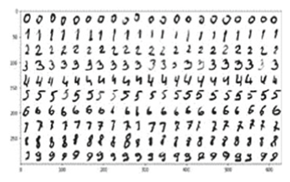 0
0 0 0 0 0 0 0 0 0 0 0 0 0 0 0 0 0 0 0 0
1 1 1 1 1 1 1 1 1 1 1 1 1 1 1 1 1 1 1 1
50
2 2 2 2 2 2 2 2 2 2 2 2 2 2 2 2 2 2 2 2
3 3 3 3 3 3 3 3 3 3 3 3 3 3 3 3 3 3 3 3
100
4 4 4 4 4 4 4 4 4 4 4 4 4 4 4 4 4 4 4 4
5 5 5 5 5 5 5 5 5 5 5 5 5 5 5 5 5 5 5 5
150
6 6 6 6 6 6 6 6 6 6 6 6 6 6 6 6 6 6 6 6
200
7 7 7 7 7 7 7 7 7 7 7 7 7 7 7 7 7 7 7 7
8 8 8 8 8 8 8 8 8 8 8 8 8 8 8 8 8 8 8 8
250
9 9 9 9 9 9 9 9 9 9 9 9 9 9 9 9 9 9 9 9
0 100 200 300 400 500 600